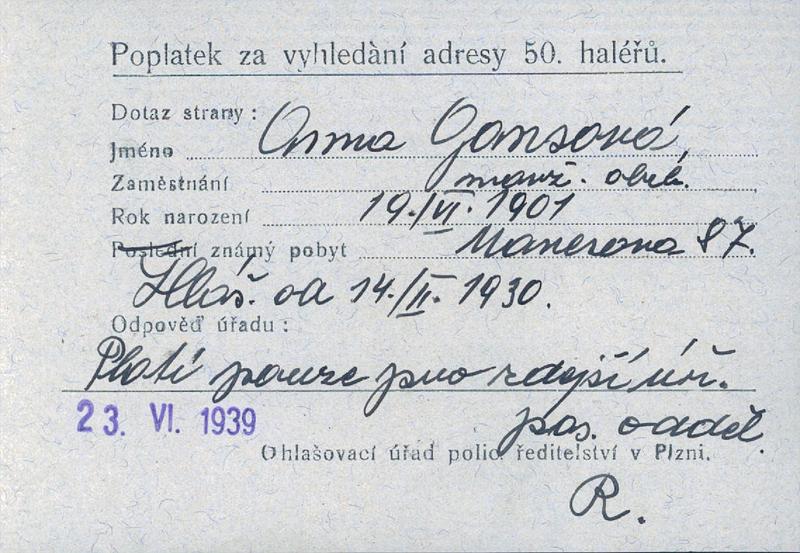 Poplatek za vyhledání adresy 50. haléřů.
Dotaz strany:
Jméno Anna Gansová,
Zaměstnání manž. obch.
Rok narození 19./VI. 1901
Poslední známý pobyt Manesova 87.
Hláš. od 14./II. 1930.
Odpověď úřadu:
Platí pouze pro zdejší úř.
23. VI. 1939 pas. odděl.
Ohlašovací úřad polic. ředitelství v Plzni.
R.